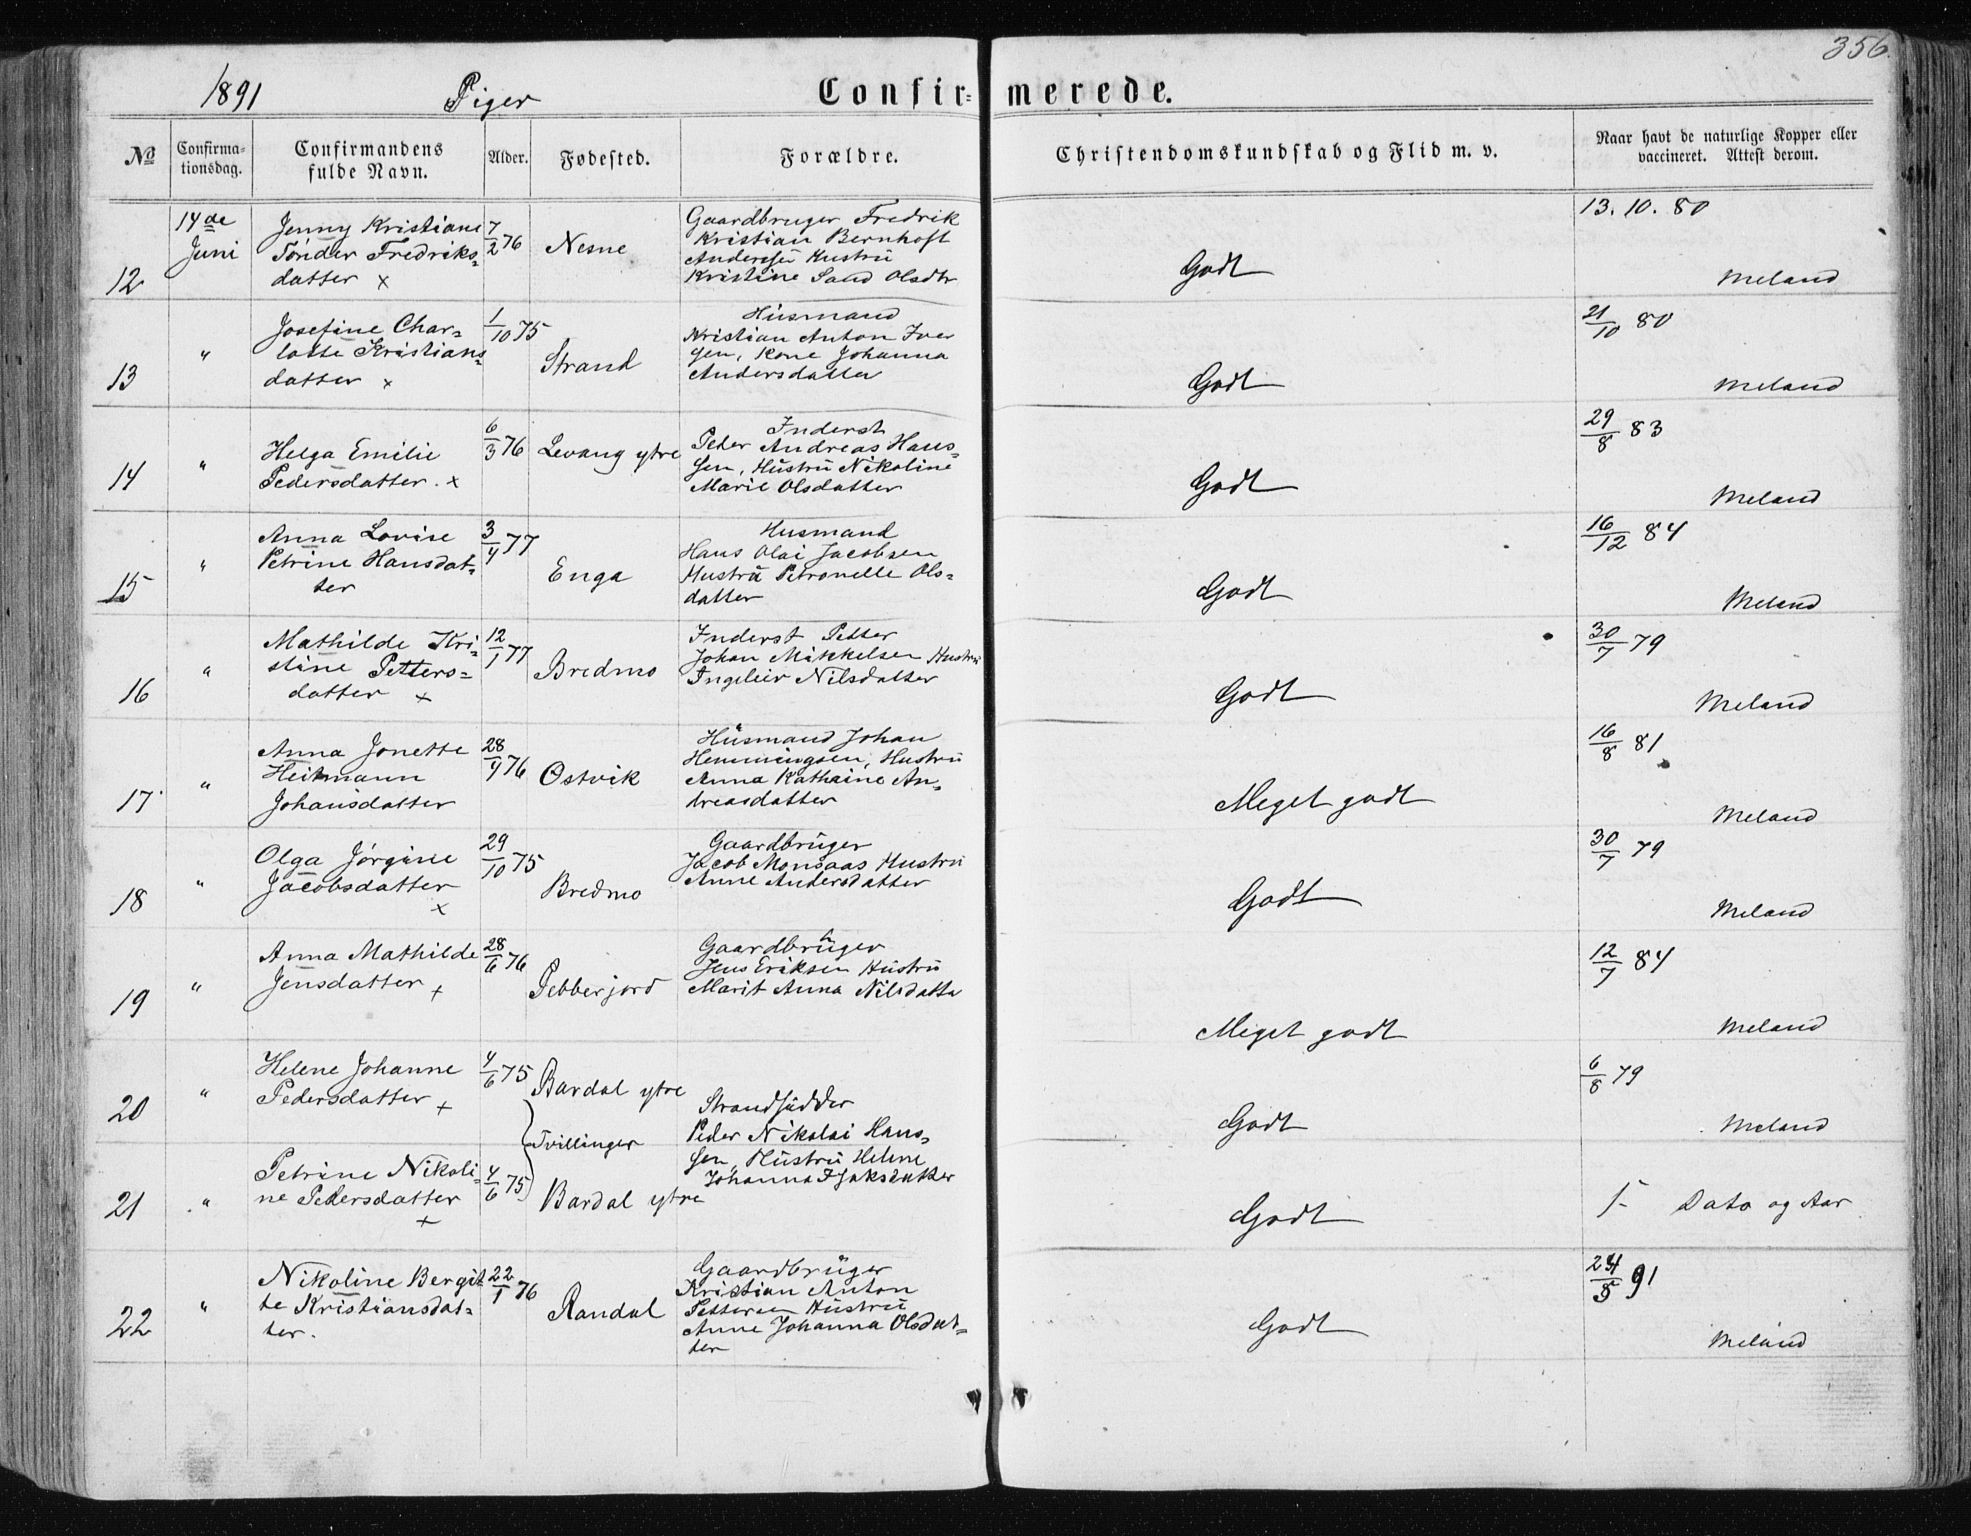 356.
1891 Piger Confirmerede.
No Confirmationsdag. Confirmandens fulde Navn. Alder. Fødested. Forældre. Christendomskundskab og Flid m. v. Naar havt de naturlige Kopper eller vaccineret. Attest derom.
14de Juni
12
Jenny Kristiane
Tönder Fredriks-
datter x
7/2 76
Nesne
Gaardbruger Fredrik
Kristian Bernhoft
Andersen Hustru
Kristine Sand Olsdtr
Godt
13. 10. 80
Meland
13
"
Josefine Char-
lotte Kristians-
datter x
1/10 75
Strand
Husmand
Kristian Anton Iver
sen, Kone Johanna
Andersdatter
Godt
21/10 80
Meland
14
"
Helga Emilie
Pedersdatter. x
6/3 76
Levang ytre
Inderst
Peter Andreas Hans-
sen, Hustru Nikoline
Marie Olsdatter
Godt
29/8 83
Meland
15
"
Anna Lovise
Petrine Hansdat-
ter
3/4 77
Enga
Husmand
Hans Olai Jacobsen
Hustru Petronelle Ols-
datter
Godt
16/12 84
Meland
16
"
Mathilde Kri-
stine Petters-
datter x
12/1 77
Bredmo
Inderst Petter
Johan Mikkelsen Hustru
Ingeleiv Nilsdatter
Godt
30/7 79
Meland
17
"
Anna Jonette
Heitmann
Johansdatter
28/4 76
Ostvik
Husmand Johan
Hemmingsen, Hustru
Anna Kathaine An-
dreasdatter
Meget godt
16/8 81
Meland
18
"
Olga Jörgine
Jacobsdatter
x
29/10 75
Bredmo
Gaardbruger
Jacob Monsaas Hustru
Anne Andersdatter
Godt
30/7 79
Meland
19
"
Anna Mathilde
Jensdatter x
28/6 76
Pebberjord
Gaardbruger
Jens Eriksen Hustru
Marit Anna Nilsdatter
Meget godt
12/7 84
Meland
20
"
Helene Johanne
Pedersdatter x
4/6 75
Bardal ytre
Tvillinger
Strandsidder
Peder Nikolai Hans-
sen, Hustru Helene
Johanna Isaksdatter
Godt
6/8 79
Meland
21
"
Petrine Nikoli-
ne Pedersdatter
x
4/6 75
Bardal ytre
Godt
Dato og Aar
22
"
Nikoline Bergit-
te Kristiansdat-
ter.
22/1 76
Randal
Gaardbruger
Kristian Anton
Pettersen Hustru
Anne Johanna Olsdat-
ter
Godt
24/5 91
Meland